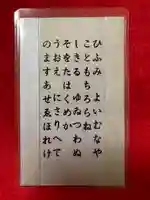 ひふみ よいむなや
こともちろらね
しきる ゆゐつわぬ
そをたはくめか
うおえ にさりへて
のますあせゑほれけ